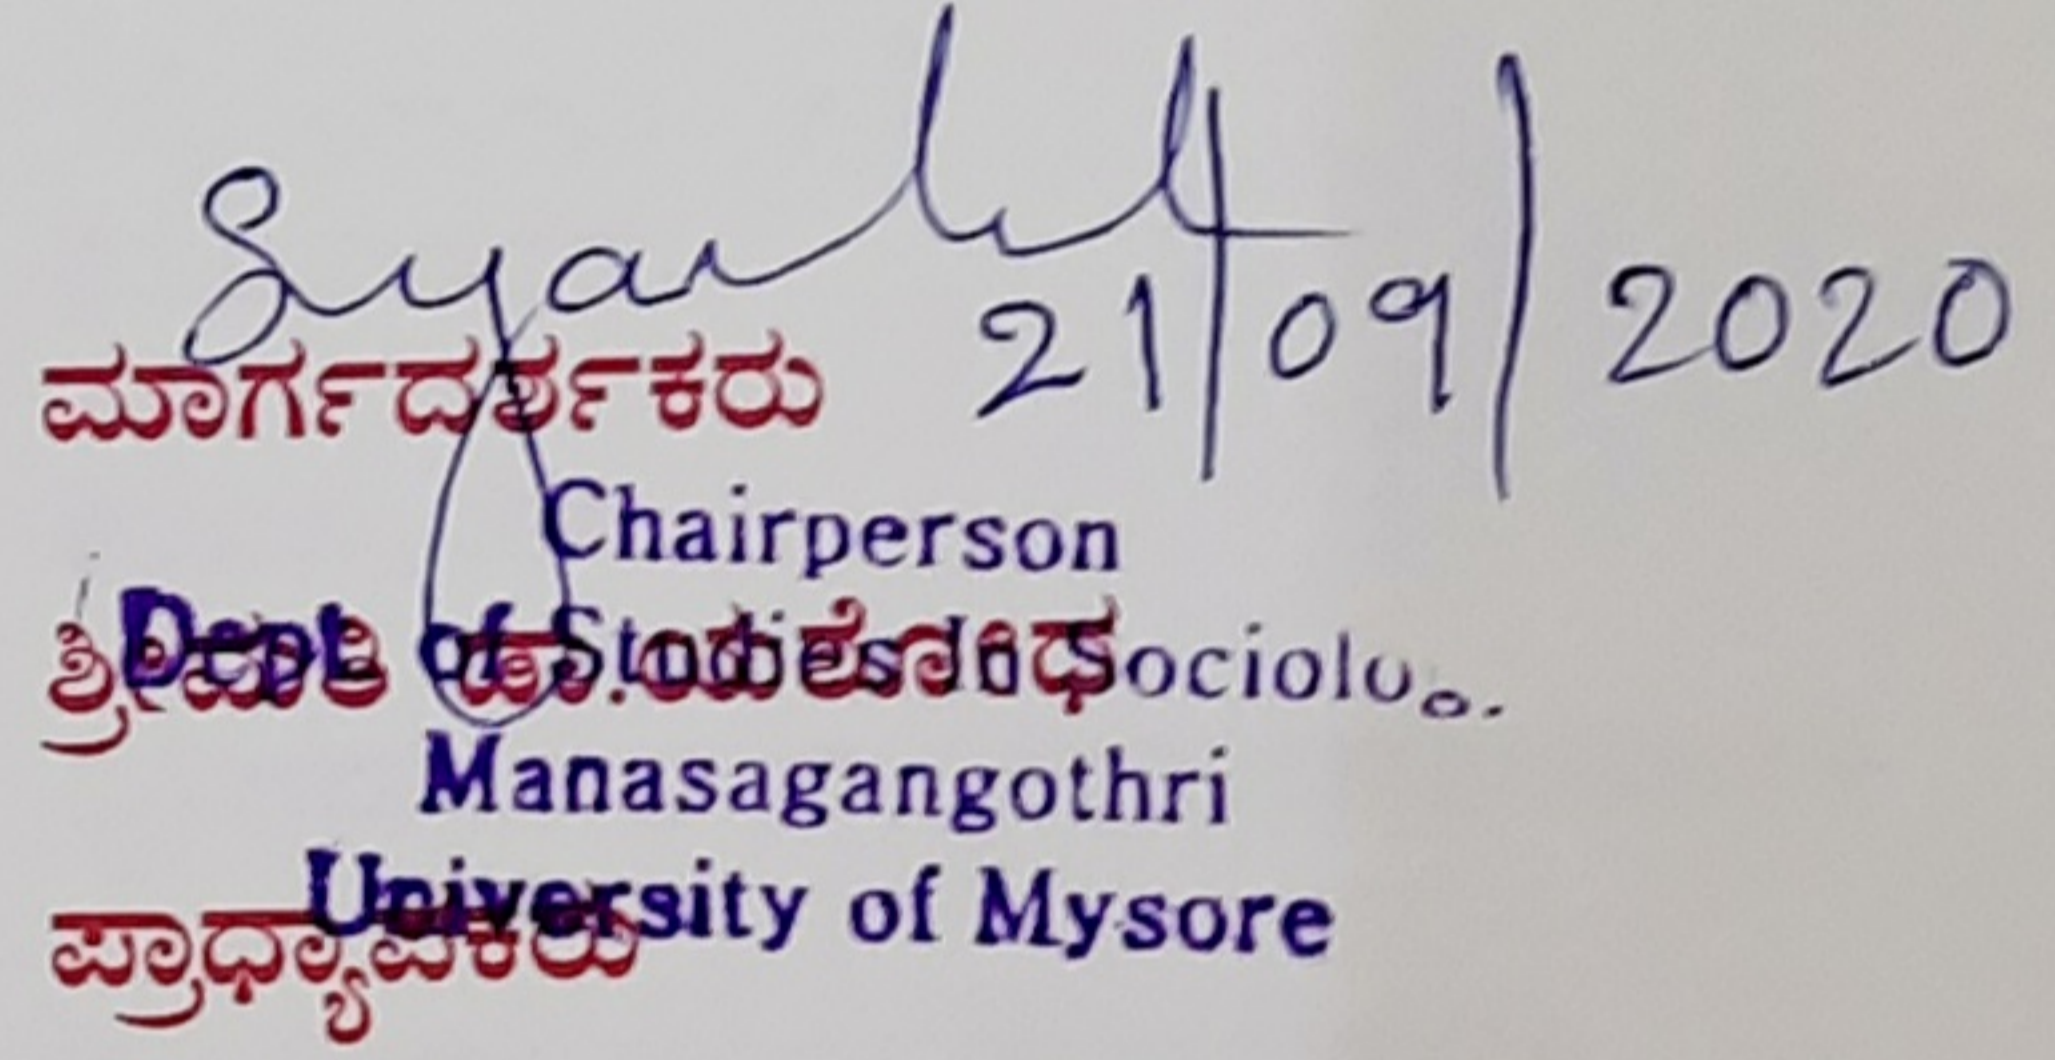 21/09/2020
ಮಾರ್ಗದರ್ಶಕರು
Chairperson
Dept. of Studies In
ಶ್ರೀಮತಿ ಡಾ.ಯಶೋಧ
Manasagangothri
University of Mysore
ಪ್ರಾಧ್ಯಾಪಕರು